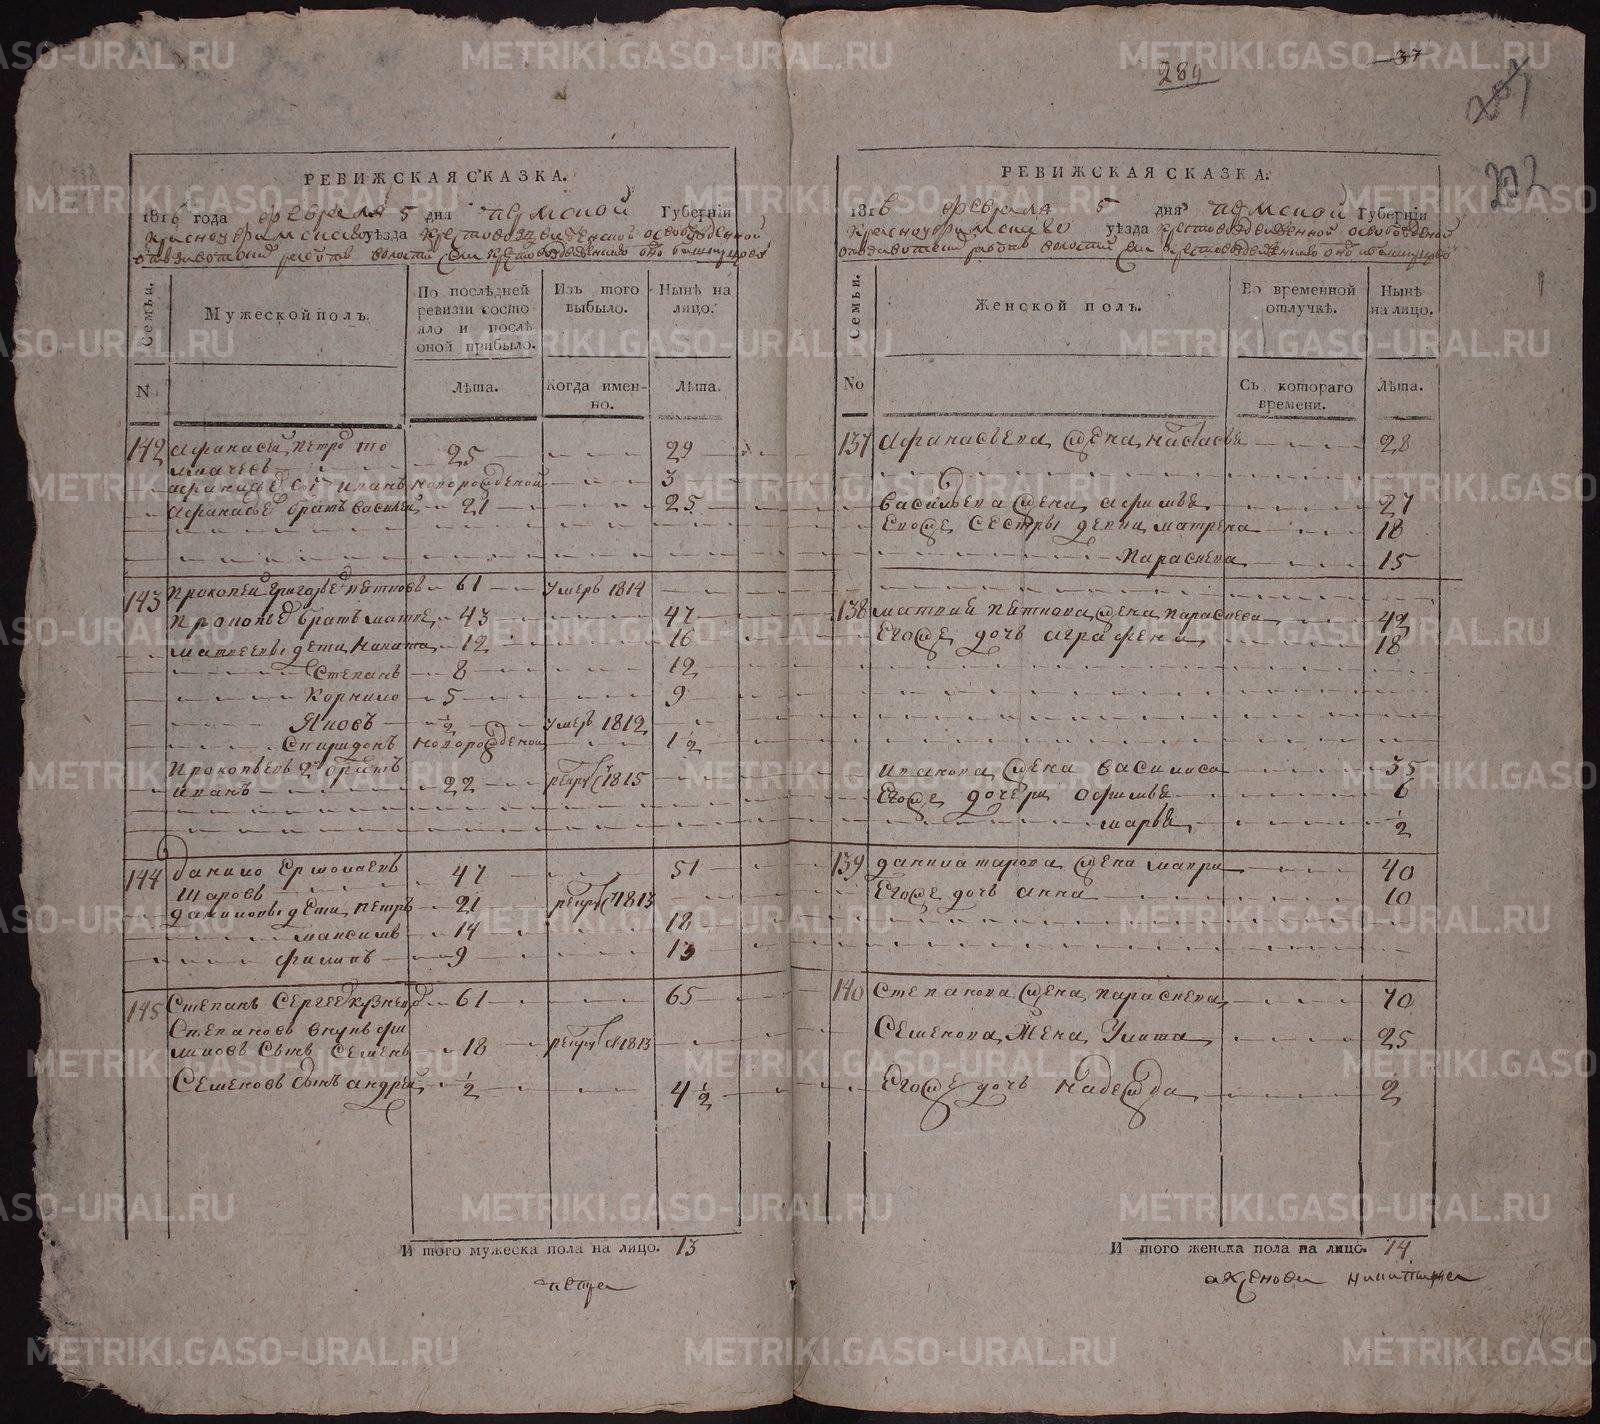 289
37
202
РЕВИЖСКАЯ СКАЗКА.
1816 года февраля 5 дня Пермской Губернїи
Красноуфимскаго уѣзда
Семьи.
Мужеской полъ.
По послѣдней ревизїи состояло и послѣ оной прибыло.
Изъ того выбыло.
Нынѣ на лицо.
N
Лѣта.
Когда именно.
Лѣта.
142 Афанасей Петровъ То 25 29
лмачевъ
Афанасьевъ сынъ Иванъ новорожденой 3
Афанасьевъ братъ Василей 21 25
143 Прокопей Григорьевъ Пятковъ 61 умеръ 1814
Прокопьевъ братъ Матвей 43 47
Матвеевы дети Никита 12 16
Степанъ 8 12
Корнило 5 9
Яковъ 1/2 умеръ 1812
Спиридонъ новорожденой 1 1/2
Прокопьевъ 2й братъ
Иванъ 22 рекрут 1815
144 Данило Ермолаевъ 47 51
Шаровъ
Даниловы дети Петръ 21 рекрут 1813
Максимъ 14 18
Филипъ 9 13
145 Степанъ Сергеевъ Кузнецовъ 61 65
Степановъ внукъ Фи
липовъ сынъ Семенъ 18 рекрут 1813
Семеновъ сынъ Андрей 1/2 4 1/2
И того мужеска пола на лицо. 13
РЕВИЖСКАЯ СКАЗКА.
1816 февраля 5 дня Пермской Губернїи
Красноуфимскаго уѣзда
Семьи.
Женской полъ.
Во временной отлучкѣ.
Нынѣ на лицо.
No
Съ котораго времени.
Лѣта.
137 Афанасьева жена Настасья 28
Васильева жена Афимья 27
Его же сестры девки Матрена 18
Параскева 15
138 Матвия Пяткова жена Параскева 49
Его же дочь Аграфена 18
Иванова жена Василиса 35
Его же дочери Офимья 6
Марья 1/2
139 Данила Шарова жена Мавра 40
Его же дочь Анна 10
140 Степанова жена Параскева 70
Семенова жена Улита 25
Его же дочь Надежда 2
И того женска пола на лицо. 14